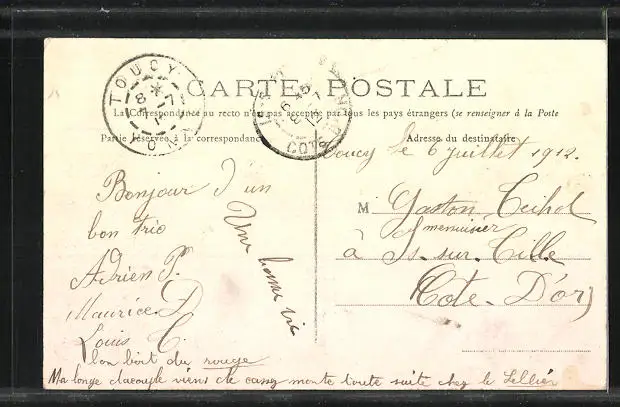 CARTE POSTALE
La Correspondance au recto n'est pas acceptée par tous les pays étrangers (se renseigner à la Poste
Partie réservée à la correspondance
Adresse du destinataire
TOUCY
8 7
COTE
Toucy le 6 juillet 1912.
Bonjour d'un
bon trio
Adrien P.
Maurice D
Louis C.
Une bonne vie
M Gaston
menuisier
à Is-sur-Tille
Cote-D'or
bon boit du rouge
Ma longe viens de casser monte toute suite chez le Sellier